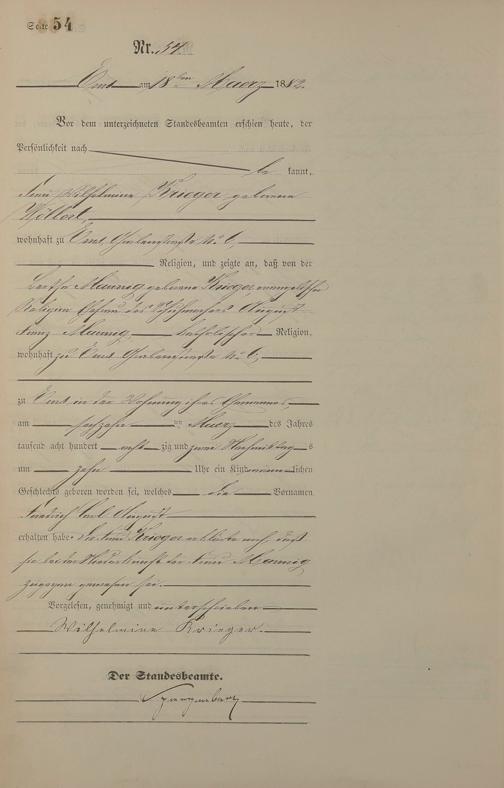 Seite 54
Nr. 54.
Ems am 18ten Maerz 1882.
Vor dem unterzeichneten Standesbeamten erschien heute, der
Persönlichkeit nach
be kannt,
Frau Wilhelmine Krieger geborene
wohnhaft zu Ems
Religion, und zeigte an, daß von der
geborene Krieger, evangelischer
Religion Ehefrau des August
katholischer Religion,
wohnhaft zu Ems
zu Ems in der Wohnung ihres Ehemannes,
am sechzehn ten Maerz des Jahres
tausend acht hundert acht zig und zwei Nachmittag s
um zehn Uhr ein Kind männ lichen
Geschlechts geboren worden sei, welches die Vornamen
Friedrich Carl August
erhalten habe. Die Frau Krieger erklärte noch, daß
sie bei der Niederkunft der Frau
zugegen gewesen sei.
Vorgelesen, genehmigt und unterschrieben
Wilhelmine Krieger.
Der Standesbeamte.